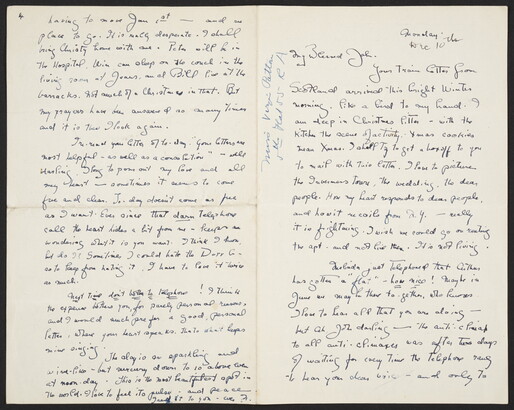 Monday
Dec 10
My Blessed Job.
Your Train letter from
Scotland arrived this bright Winter
morning. like a bird to my hand. I
am deep in Christmas litter - with the
Kitchen the scene of activity, Xmas cookies
near Xmas. I shall try to get a box off to you
to mail with this letter. I love to picture
the Inverness town, the wedding, the dear
people. How my heart responds to dear people,
and how it recoils from N.Y. - really
it is frightening. I wish we could go on renting
the apt - and not live there. It is not living.
just telephoned that
has gotten a "flat" - how nice! Maybe in
June we may be there together, who knows
I love to hear all that you are doing -
but oh Job darling - the anti-climax
to all anti-climaxes was after two days
of waiting for every time the telephone rang
to hear your dear voice - and only to
4
having to move Jan 1st - and no
place to go. It is really desperate. I shall
bring Christy home with me. Peter will be in
the Hospital, Win can sleep on the couch in the
living room at Joans, and Bill live at the
barracks. Not much of a Christmas in that. But
my prayers have been answered so many times
and it is two I look again.
I re-read your letter of to-day. Your letters are
most helpful - as well as a consolation - oh
darling I long to pour out my love and all
my heart - sometimes it seems to come
free and clear. To-day doesn't come as free
as I want. Ever since that darn telephone
call the heart hides a bit from us - keeps on
wondering what it is you want. I think I know,
but do I? Sometimes I could hate the
to keep from hating it. I have to love it twice
as much.
Next time don't listen to telephone! I think
the expense bothers you for purely personal reasons,
and I would much prefer a good, personal
letter, where your heart speaks. That don't keeps
mine singing.
The day is so sparkling and
- but mercury down to 10 above even
at noon day. This is the most beautiful spot in
the world. I love to feel its pulse - and peace
to you -